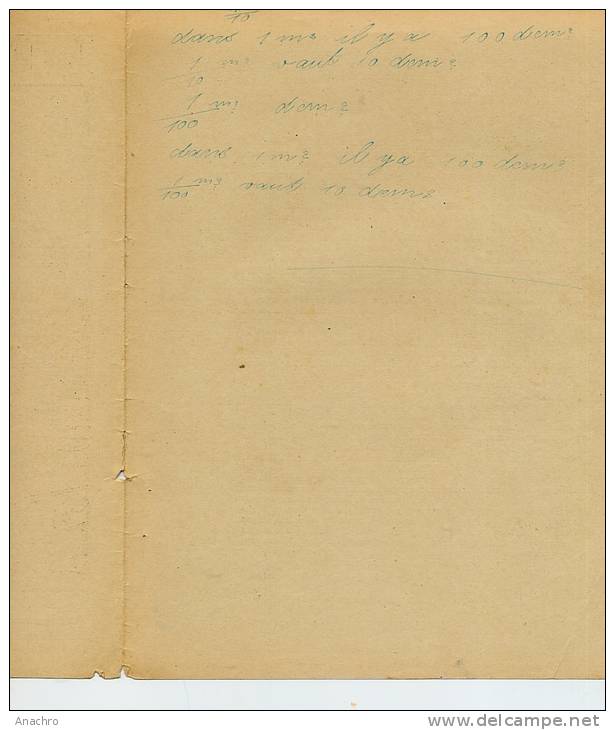 10
dans 1 m² il y a 100 dcm²
1/10 m² vaut 10 dcm²
1/100 m² dcm²
dans 1 m² il y a 100 dcm²
1/100 m² vaut 10 dcm²
Anachro
www.delcampe.net